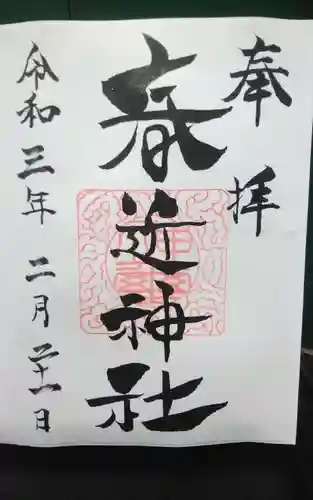 奉拝
春近神社
令和三年二月廿一日